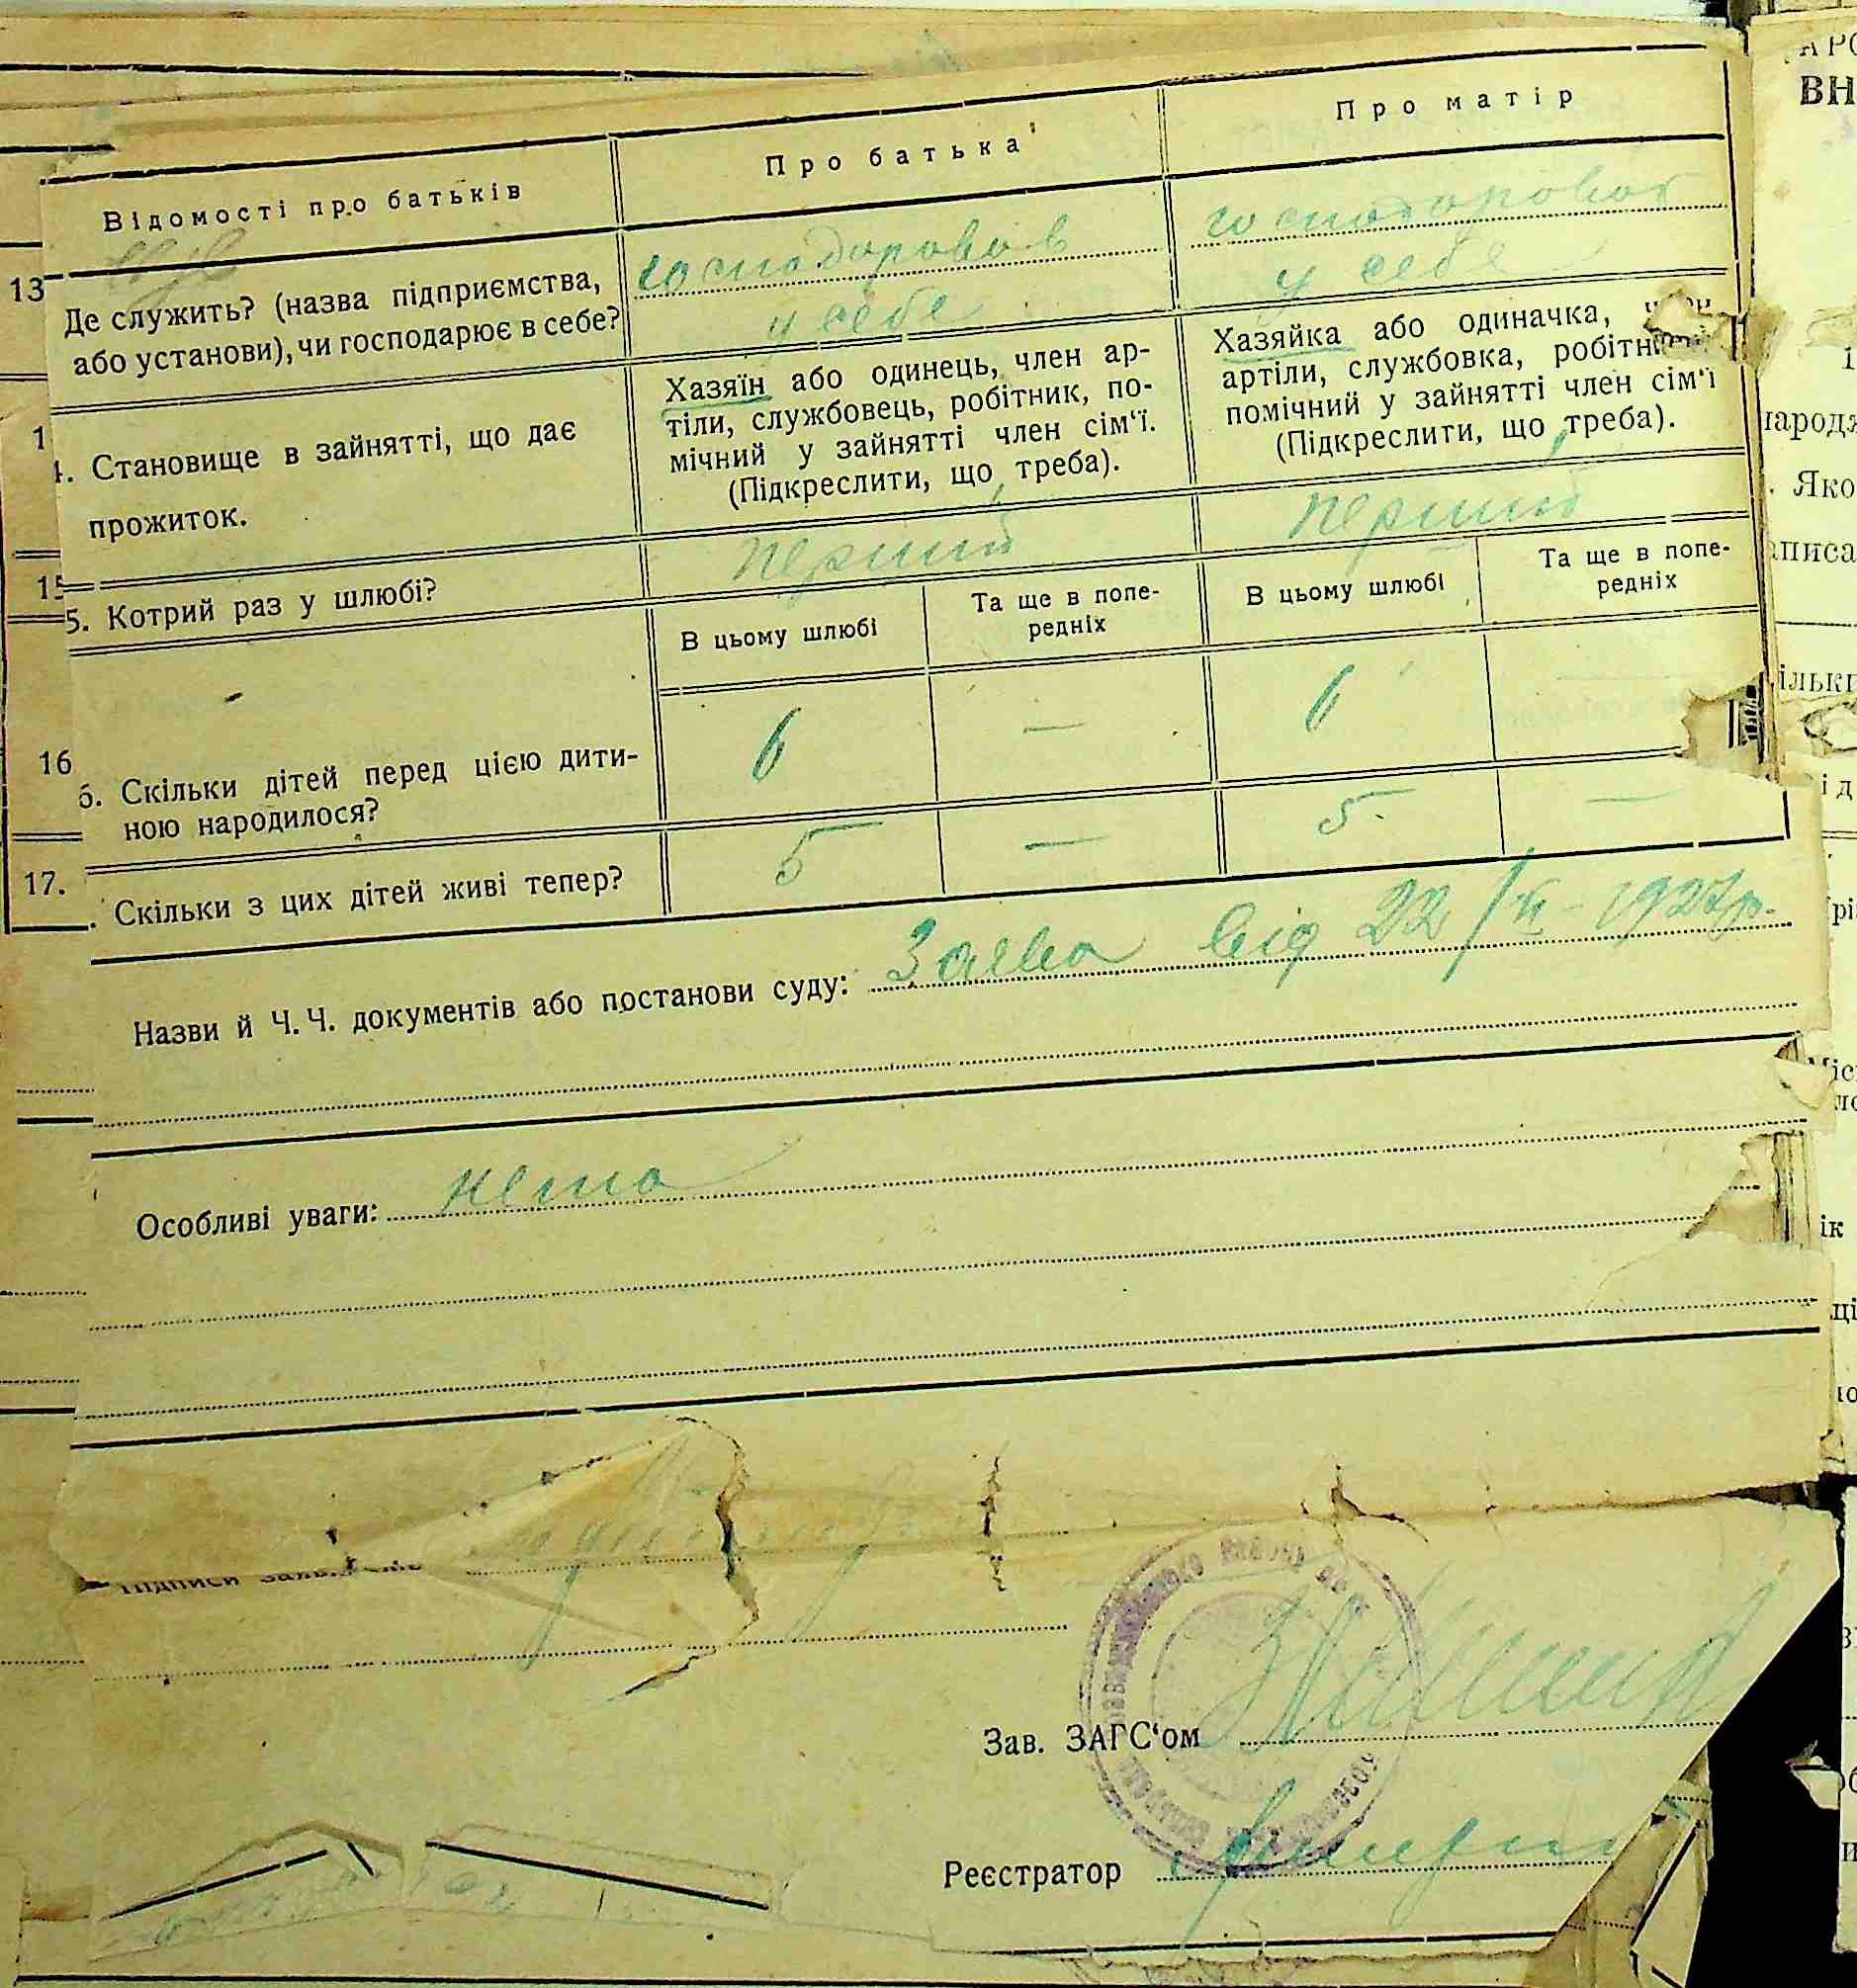 Відомості про батьків
Про батька
Про матір
13
Де служить? (назва підприємства,
або установи), чи господарює в себе?
господорював
у себе
господоровот
у себе
Становище в зайнятті, що дає
прожиток.
Хазяїн або одинець, член ар-
тіли, службовець, робітник, по-
мічний у зайнятті член сім'ї.
(Підкреслити, що треба).
Хазяйка або одиначка,
артіли, службовка,
помічний у зайнятті член сім'ї
(Підкреслити, що треба).
15
5. Котрий раз у шлюбі?
перший
перший
В цьому шлюбі
Та ще в попе-
редніх
В цьому шлюбі
Та ще в попе-
редніх
16
6. Скільки дітей перед цією дити-
ною народилося?
6 — 6
17.
. Скільки з цих дітей живі тепер?
5 — 5. —
Назви й Ч. Ч. документів або постанови суду: Заява від 22/ 1927р.
Особливі уваги: нема
Зав. ЗАГС'ом
Реєстратор
ВН
Яко